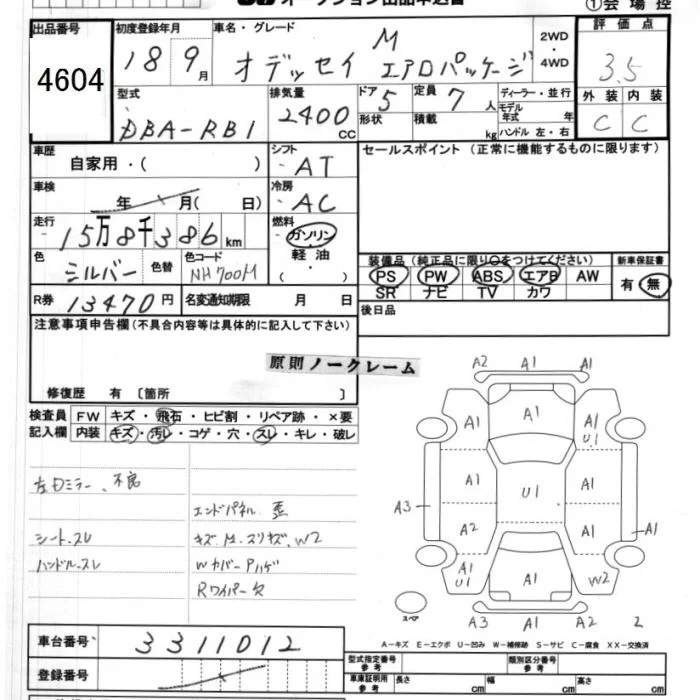 オークション出品申込書
①会場控
出品番号 初度登録年月 車名・グレード 2WD ・ 4WD 評価点
4604 18 9月 オデッセイ M エアロパッケージ 3.5
型式 排気量 ドア 5 定員 7人 ディーラー・並行 外装 内装
DBA-RB1 2400cc 形状 積載 kg モデル年式 年 ハンドル 左・右 C C
車歴 自家用・( ) シフト AT セールスポイント (正常に機能するものに限ります)
車検 年 月( 日) 冷房 AC
走行 15万8千386km 燃料 ガソリン 軽油 ( ・ )
色 シルバー 色替 色コード NH700M
装備品(純正品に限り○をつけてください) 新車保証書
PS PW ABS エアB AW 有・無
SR ナビ TV カワ
R券 13470円 名変通知期限 月 日 後日品
注意事項申告欄(不具合内容等は具体的に記入して下さい)
原則ノークレーム
修復歴 有 〔箇所 〕
検査員 FW キズ・飛石・ヒビ割・リペア跡・×要
記入欄 内装 キズ・汚レ・コゲ・穴・スレ・キレ・破レ
左ドミラー不良
エンドパネル歪
シートスレ キズ.M.スリキズ.W2
ハンドルスレ WカバーAハゲ
Rワイパー欠
A2 A1 A1
A1 A1 A1 U1
A3 A1 U1 A1
A2 A1 A1
A1 U1 A1 W2
スペア A3 A1 A2 2
A-キズ E-エクボ U-凹み W-補修跡 S-サビ C-腐食 XX-交換済
車台番号 3311012
登録番号
型式指定番号 参考 類別区分番号 参考
車庫証明用 参考 長さ cm 幅 cm 高さ cm